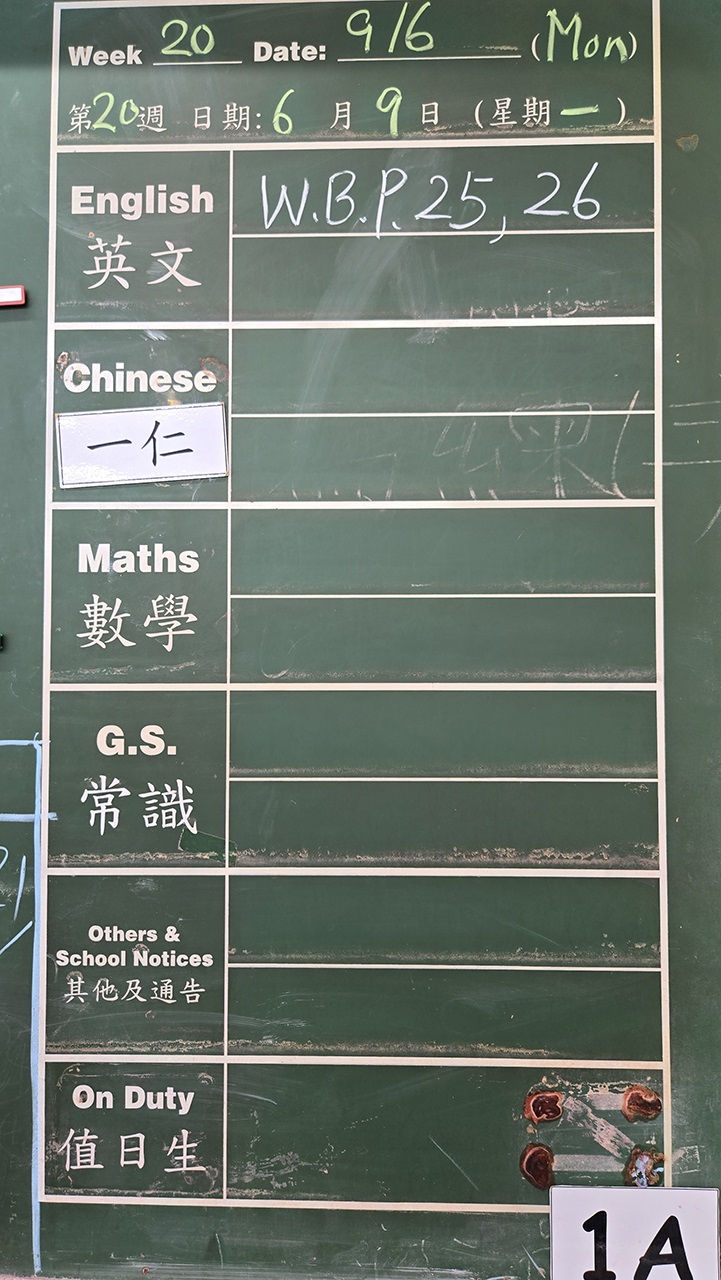 Week 20 Date: 9/6 (Mon)
第20週 日期: 6 月 9 日 (星期一)
English
英文
W.B.P. 25, 26
Chinese
一仁
Maths
數學
G.S.
常識
Others &
School Notices
其他及通告
On Duty
值日生
1A